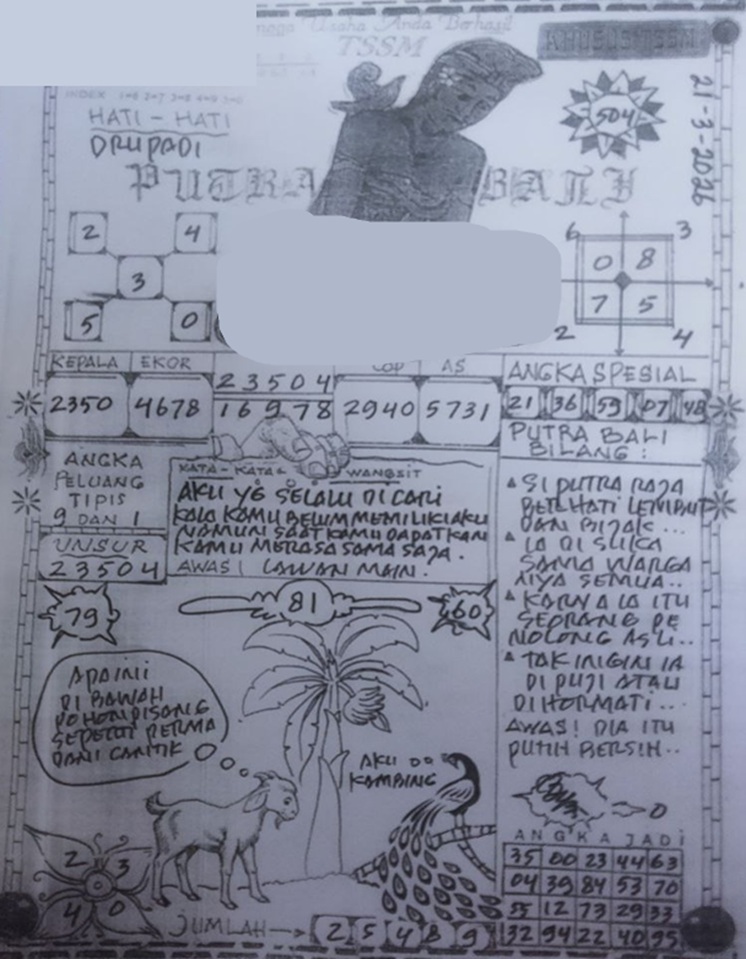 Usaha Anda Berhasil
TSSM
KHUSUS TSSM
21-3-2026
INDEX
HATI - HATI
DRUPADI
504
PUTRA BALI
2 4
3
5 0
6 3
0 8
7 5
2 4
KEPALA EKOR
2350 4678
23504
16978
COP AS
2940 5731
ANGKA SPESIAL
21 36 59 07 48
ANGKA
PELUANG
TIPIS
9 DAN 1
UNSUR
23504
KATA - KATA WANGSIT
AKU YG SELALU DI CARI
KALA KAMU BELUM MEMILIKI AKU
NAMUN SAAT KAMU DAPATKAN
KAMU MERASA SAMA SAJA.
AWAS! LAWAN MAIN.
PUTRA BALI
BILANG :
SI PUTRA RAJA
BERHATI LEMBUT
DAN BIJAK...
IA DI SUKA
SAMA WARGA
NYA SEMUA..
KARNA IA ITU
SEORANG PE
NOLONG ASLI..
TAK INIGIN IA
DI PUJI ATAU
DI HORMATI...
AWAS! DIA ITU
PUTIH BERSIH..
79
81
60
APA INI
DI BAWAH
POHON PISANG
SEPERTI PERMA
DANI CANTIK
AKU DO
KAMBING
2 3
4 0
JUMLAH
2 5 4 8 9
0
ANGKA JADI
35 00 23 44 63
04 39 84 53 70
55 12 73 29 33
32 94 22 40 95